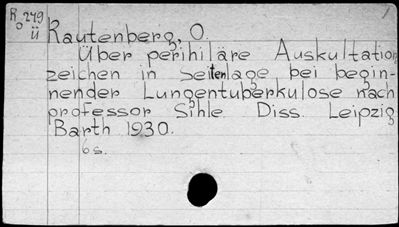 R 249
o
ü
Rautenberg, O.
Über perihiläre Auskultation
zeichen in Seitenlage bei begin-
nender Lungentuberkulose nach
professor Sihle. Diss. Leipzig
Barth 1930.
6 s.